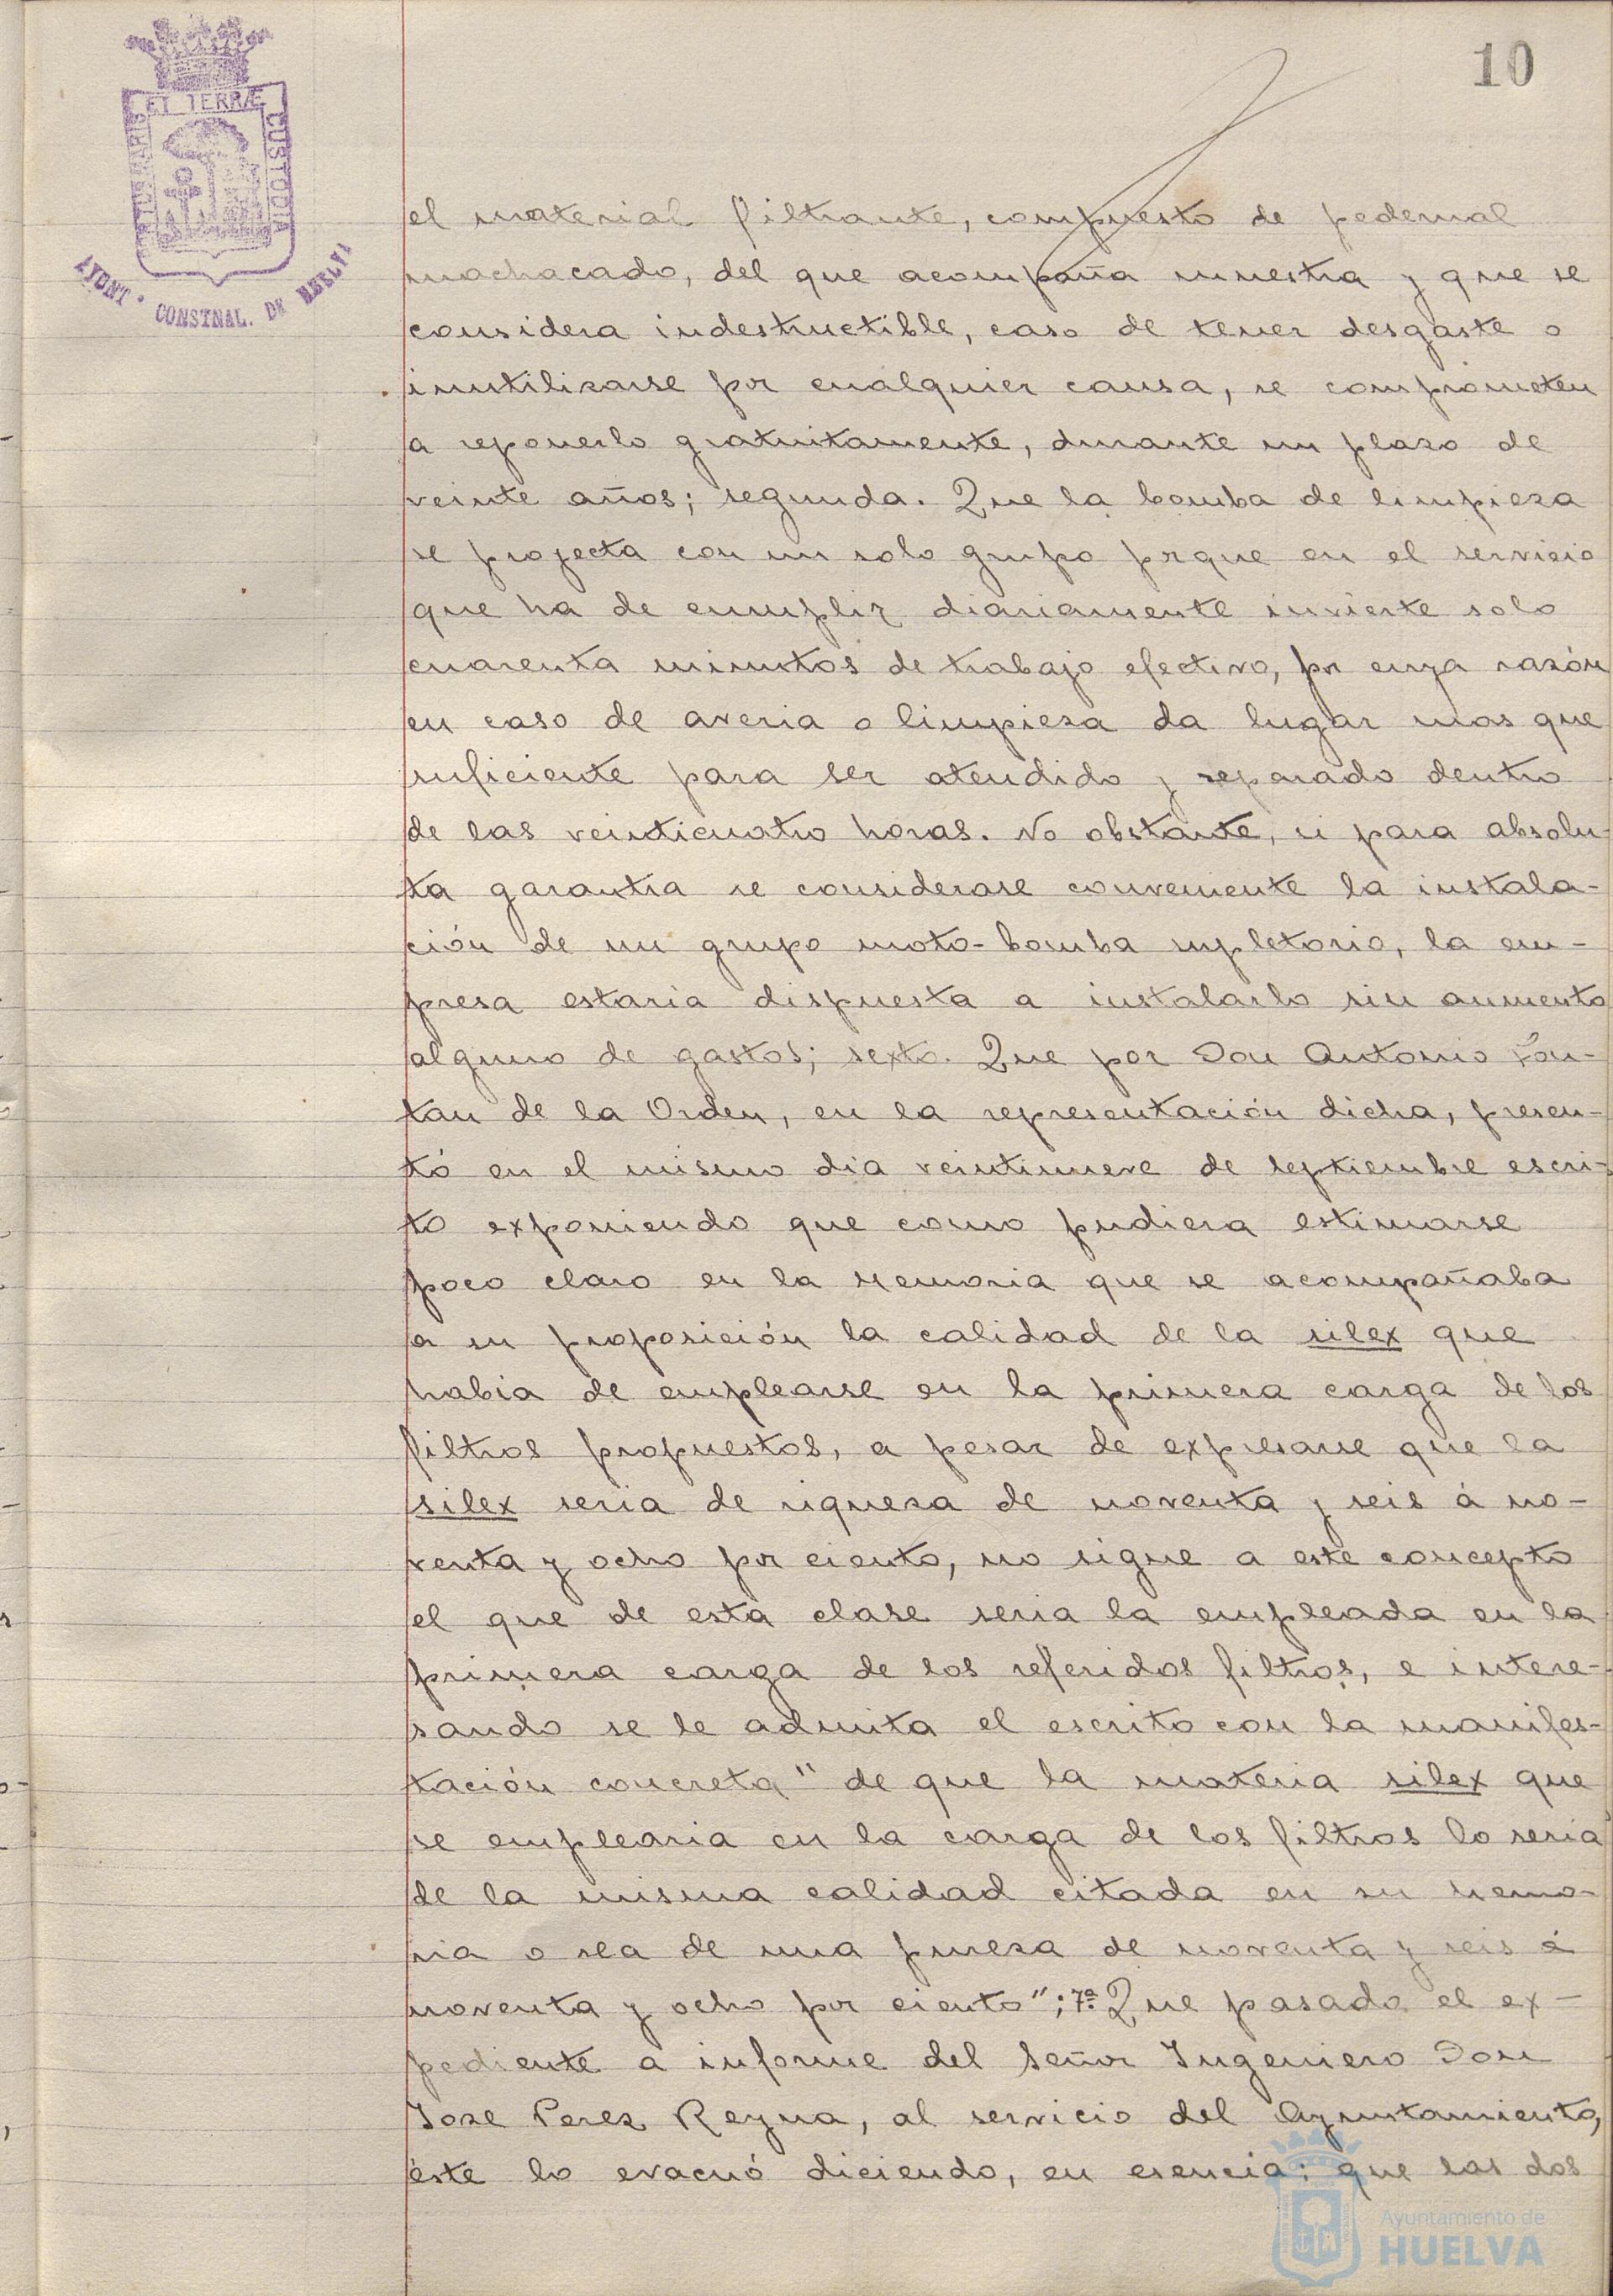 10
PORTUS MARIS
ET TERRÆ
CUSTODIA
AYONT. CONSTNAL. DE HUELVA
el material filtrante, compuesto de pedernal
machacado, del que acompaña muestra y que se
considera indestructible, caso de tener desgaste o
inutilizarse por cualquier causa, se comprometen
a reponerlo gratuitamente, durante un plazo de
veinte años; segunda. Que la bomba de limpieza
se proyecta con un solo grupo porque en el servicio
que ha de cumplir diariamente invierte solo
cuarenta minutos de trabajo efectivo, por cuya razón
en caso de averia o limpieza da lugar mas que
suficiente para ser atendido y reparado dentro
de las veinticuatro horas. No obstante, si para absolu-
ta garantia se considerase conveniente la instala-
ción de un grupo moto-bomba supletorio, la em-
presa estaria dispuesta a instalarlo sin aumento
alguno de gastos; sexto. Que por Don Antonio Fon-
tan de la Orden, en la representación dicha, presen-
tó en el mismo dia veintinueve de septiembre escri-
to exponiendo que como pudiera estimarse
poco claro en la Memoria que se acompañaba
a su proposición la calidad de la silex que
habia de emplearse en la primera carga de los
filtros propuestos, a pesar de expresarse que la
silex seria de riqueza de noventa y seis á no-
venta y ocho por ciento, no sigue a este concepto
el que de esta clase seria la empleada en la
primera carga de los referidos filtros, e intere-
sando se le admita el escrito con la manifes-
tación concreta "de que la materia silex que
se emplearia en la carga de los filtros lo seria
de la misma calidad citada en su Memo-
ria o sea de una pureza de noventa y seis á
noventa y ocho por ciento"; 7ª. Que pasado el ex-
pediente a informe del Señor Ingeniero Don
Jose Perez Reyna, al servicio del Ayuntamiento,
éste lo evacuó diciendo, en esencia: que las dos
Ayuntamiento de
HUELVA